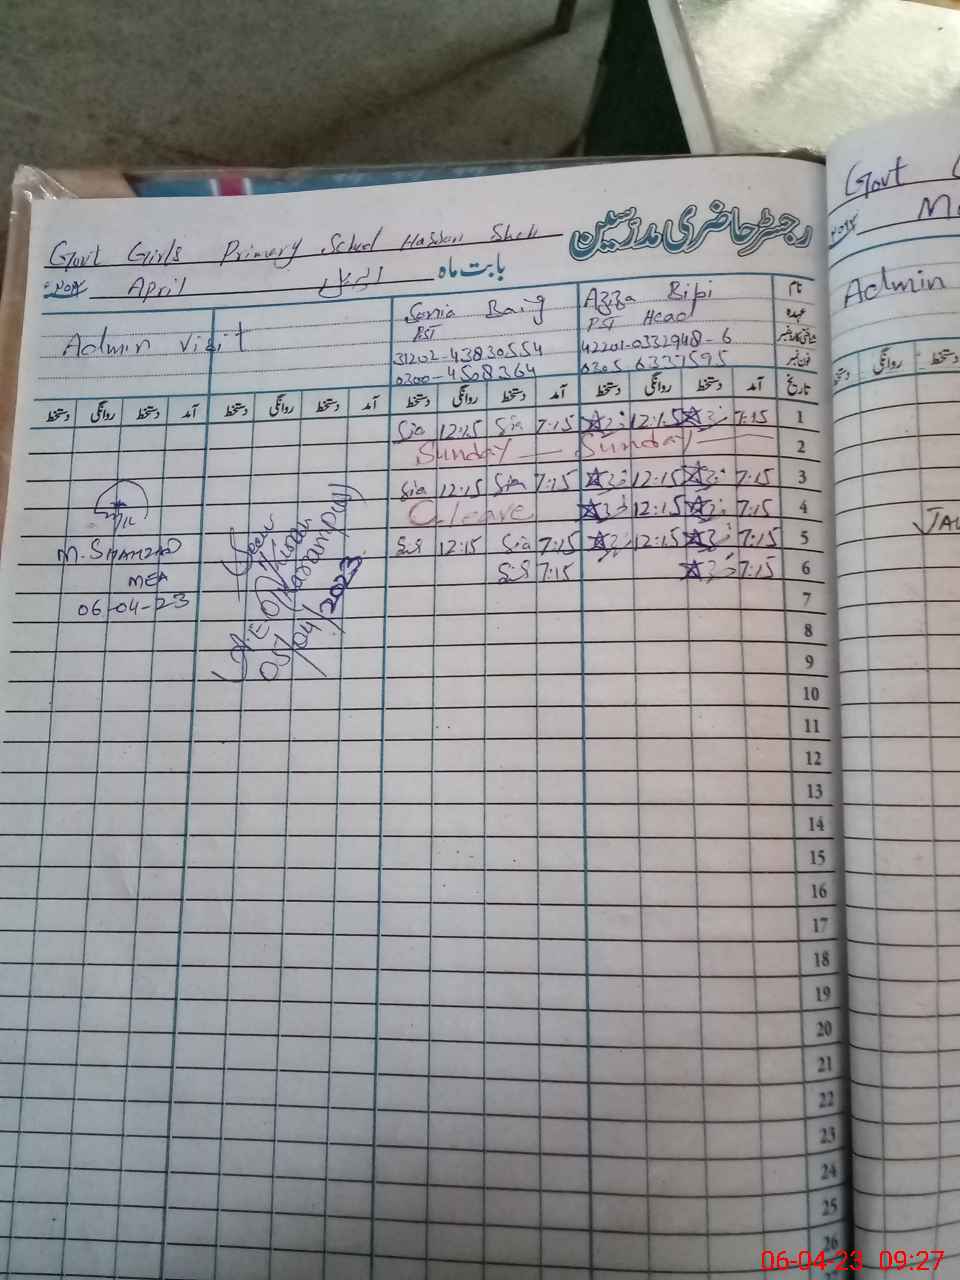 رجسٹر حاضری مدرسین
Govt Girls Primary School Hassan Shah
بابت ماہ اپریل April
نام Aziza Bibi Sonia Baig Admin visit
عہدہ PST Head PST
شناختی کارڈ نمبر 42201-0332948-6 31202-43830554
فون نمبر 0305 6337595 0300-4508364
تاریخ آمد دستخط روانگی دستخط آمد دستخط روانگی دستخط آمد دستخط روانگی دستخط آمد دستخط روانگی دستخط
1 7:15 12:15 7:15 Sia 12:15 Sia
2 Sunday Sunday
3 7:15 12:15 7:15 Sia 12:15 Sia
4 7:15 12:15 C.leave
5 7:15 12:15 7:15 Sia 12:15
6 7:15 7:15
7
8
9
10
11
12
13
14
15
16
17
18
19
20
21
22
23
24
25
26
M. SHAHZAD
MEA
06-04-23
Seen
05/04/2023
Govt
Admin
روانگی دستخط
06-04-23 09:27